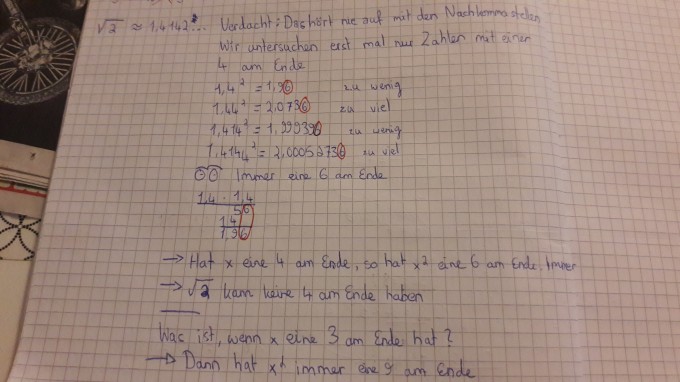 √2 ≈ 1,4142... Verdacht: Das hört nie auf mit den Nachkommastellen
Wir untersuchen erst mal nur Zahlen mit einer
4 am Ende
1,4² = 1,96 zu wenig
1,44² = 2,0736 zu viel
1,414² = 1,999396 zu wenig
1,4144² = 2,00052736 zu viel
Immer eine 6 am Ende
1,4 · 1,4
56
1,4
1,96
→ Hat x eine 4 am Ende, so hat x² eine 6 am Ende. Immer
→ √2 kann keine 4 am Ende haben
Was ist, wenn x eine 3 am Ende hat?
→ Dann hat x² immer eine 9 am Ende